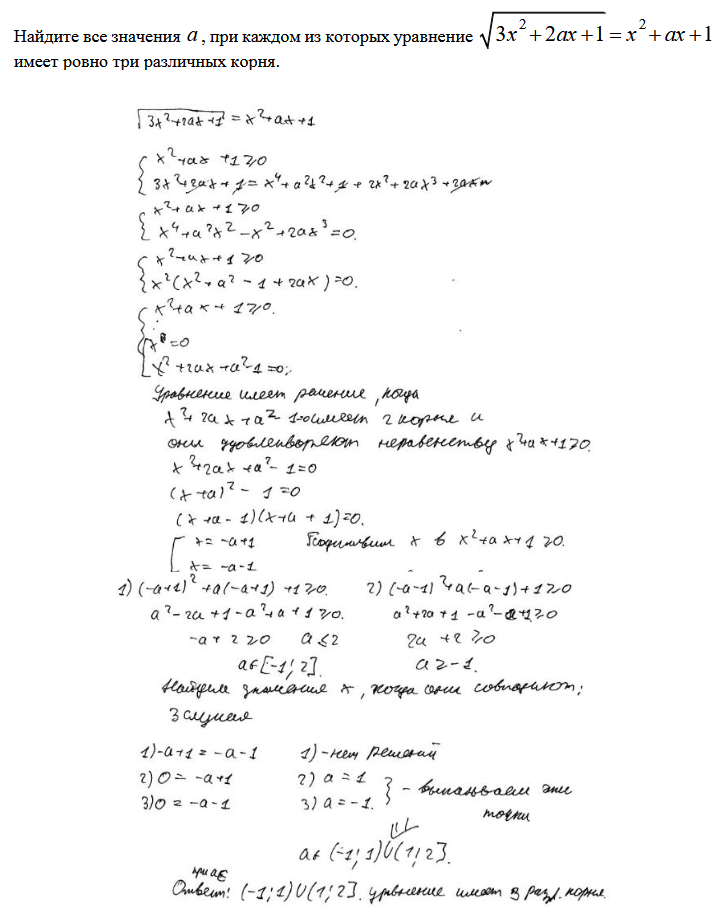 Найдите все значения a, при каждом из которых уравнение √(3x²+2ax+1) = x²+ax+1
имеет ровно три различных корня.
√(3x²+2ax+1) = x²+ax+1
{ x²+ax+1≥0
{ 3x²+2ax+1 = x⁴+a²x²+1+2x²+2ax³+2ax
{ x²+ax+1≥0
{ x⁴+a²x²-x²+2ax³=0.
{ x²+ax+1≥0
{ x²(x²+a²-1+2ax)=0.
{ x²+ax+1≥0.
[ x=0
[ x²+2ax+a²-1=0;
Уравнение имеет решение, когда
x²+2ax+a²-1=0 имеет 2 корня и
они удовлетворяют неравенству x²+ax+1≥0.
x²+2ax+a²-1=0
(x+a)²-1=0
(x+a-1)(x+a+1)=0.
[ x=-a+1 Подставим x в x²+ax+1≥0.
[ x=-a-1
1) (-a+1)²+a(-a+1)+1≥0. 2) (-a-1)²+a(-a-1)+1≥0
a²-2a+1-a²+a+1≥0. a²+2a+1-a²-a+1≥0
-a+2≥0 a≤2 2a+2≥0
a∈[-1;2]. a≥-1.
Найдем значения x, когда они совпадают;
3 случая
1) -a+1=-a-1 1) - нет решений
2) 0=-a+1 2) a=1
3) 0=-a-1 3) a=-1. } - выкалываем эти
точки
⇓
a∈(-1;1)∪(1;2].
при a∈
Ответ: (-1;1)∪(1;2]. уравнение имеет 3 разл. корня.